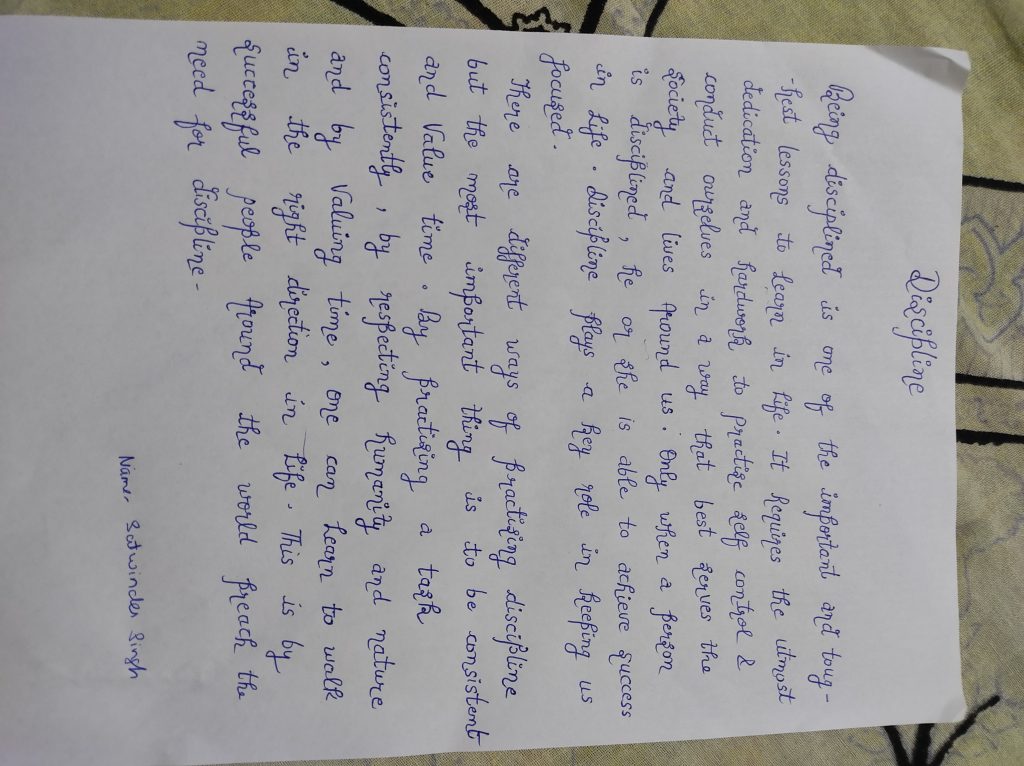 Discipline
Being disciplined is one of the important and toug-
-hest lessons to learn in life. It Requires the utmost
dedication and hardwork to practise self control &
conduct ourselves in a way that best serves the
society and lives around us. Only when a person
is disciplined, he or she is able to achieve success
in life. discipline plays a key role in keeping us
focused.
There are different ways of practising discipline
but the most important thing is to be consistent
and Value time. By practising a task
consistently, by respecting humanity and nature
and by Valuing time, one can learn to walk
in the right direction in life. This is by
successful people around the world preach the
need for discipline-
Name:- Satwinder Singh